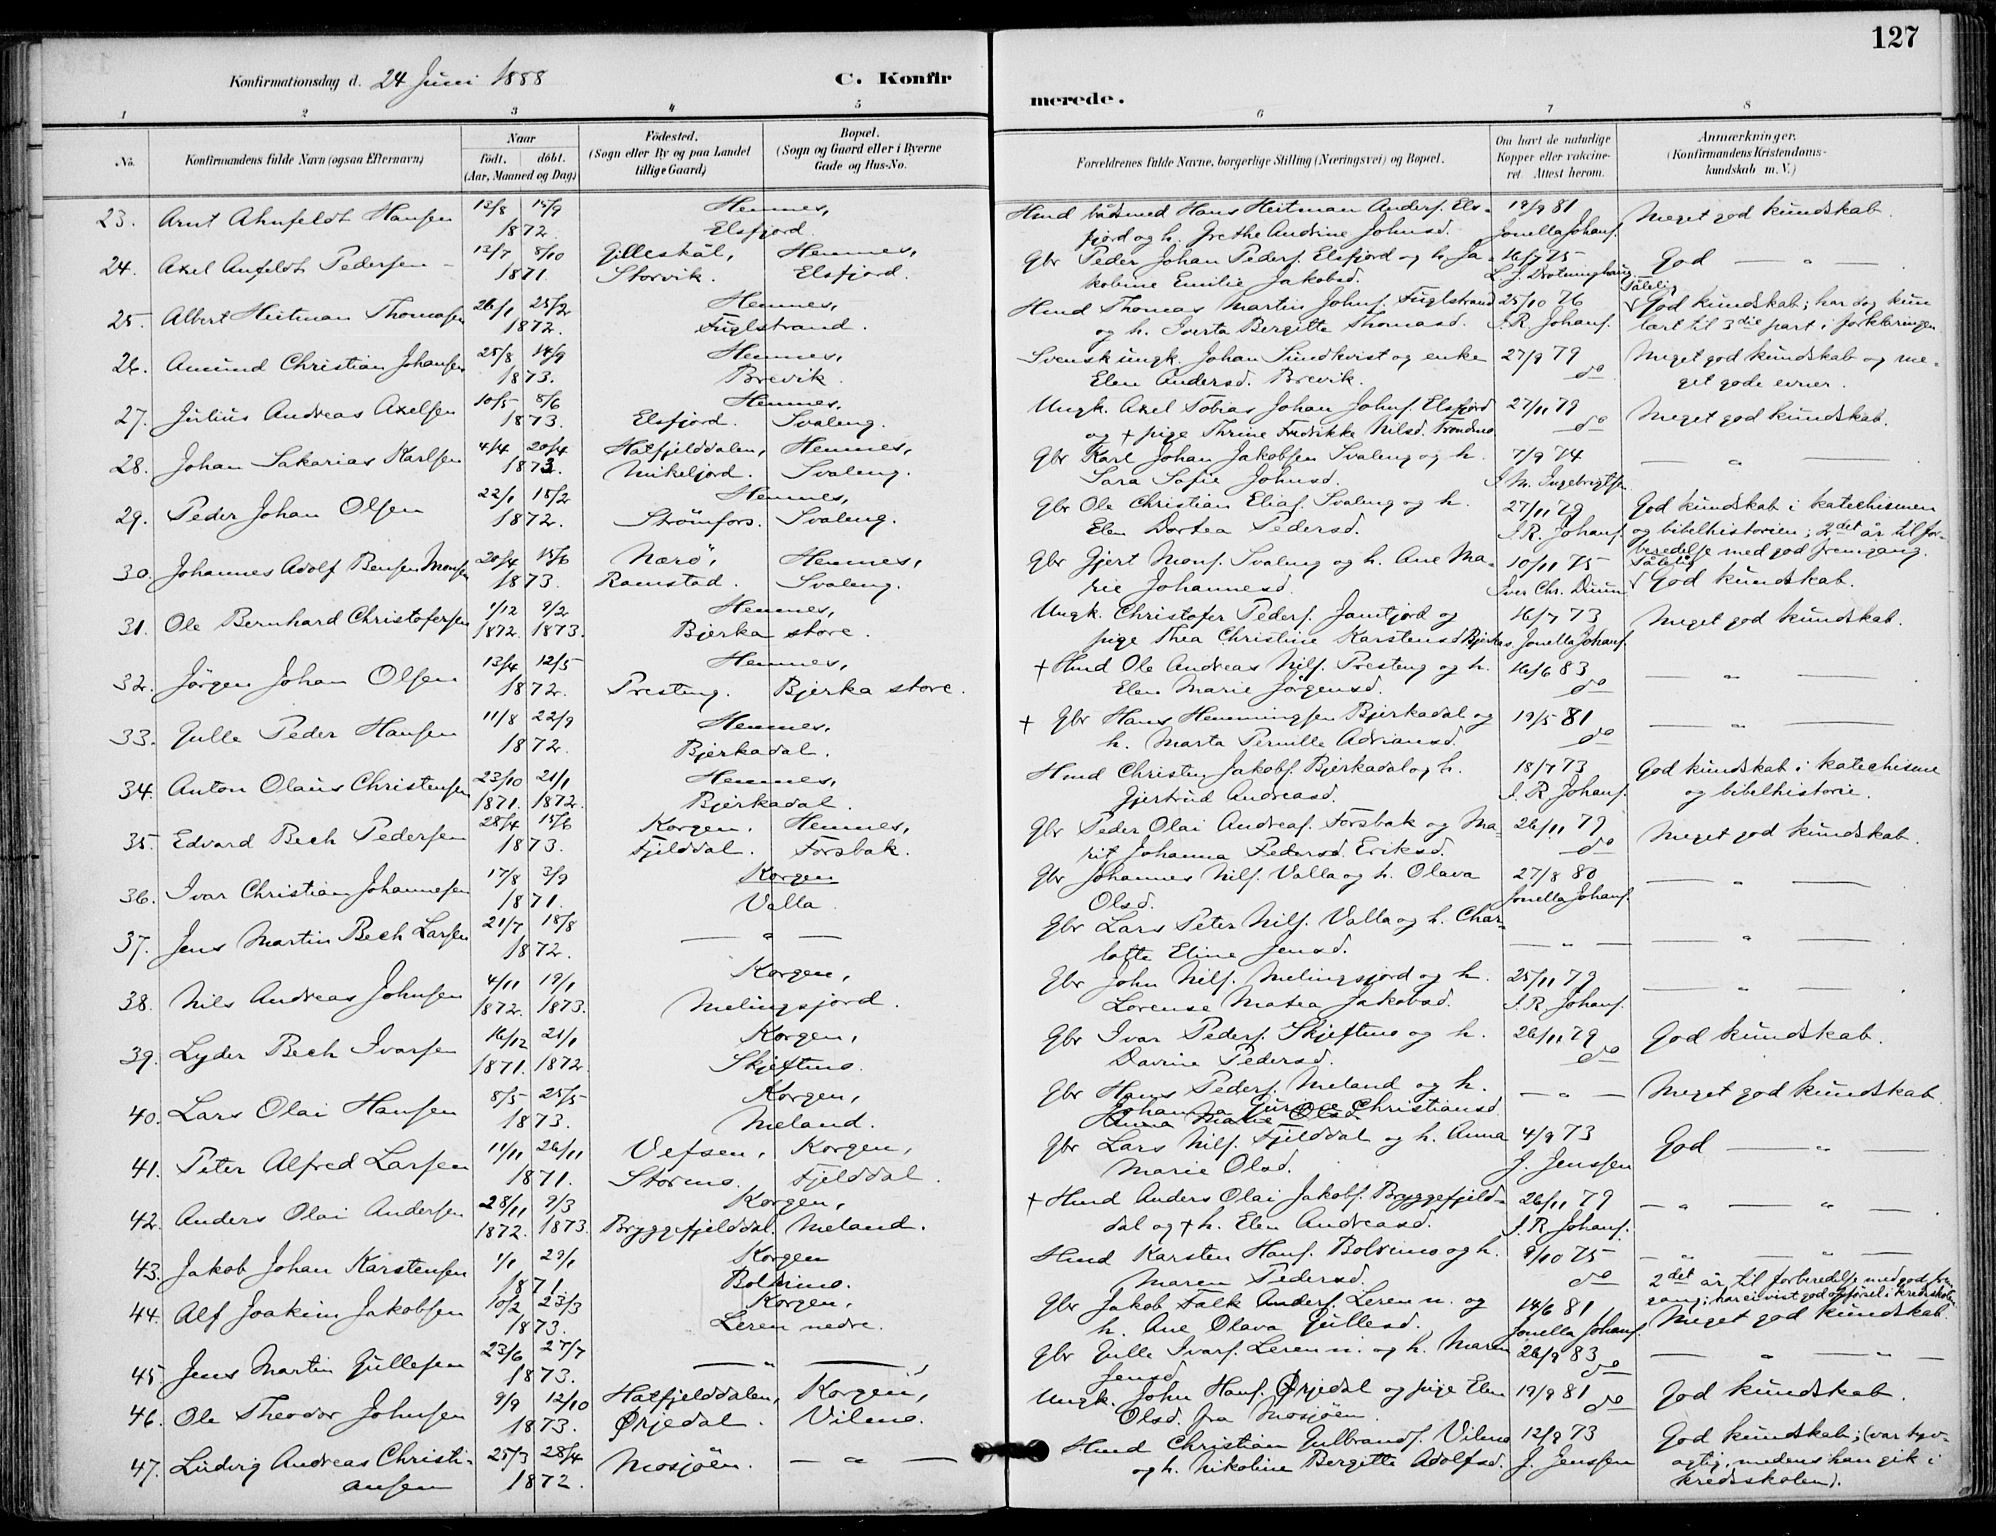 127
Konfirmationsdag d. 24 Juni 1888
C. Konfir
merede.
1 2 3 4 5 6 7 8
No.
Konfirmandens fulde Navn (ogsaa Efternavn)
Naar
født. døbt.
(Aar, Maaned og Dag)
Fødested.
(Sogn eller By og paa Landet
tillige Gaard)
Bopæl.
(Sogn og Gaard eller i Byerne
Gade og Hus-No.
Forældrenes fulde Navne, borgerlige Stilling (Næringsvei) og Bopæl.
Om havt de naturlige
Kopper eller vakcine-
ret. Attest herom.
Anmærkninger.
(Konfirmandens Kristendoms-
kundskab m. V.)
23. Arnt Ahnfeldt Hansen 12/8 15/9 Hemnes, Hmd bådsmed Hans Heitman Anders. Els- 19/9 81 Meget god kundskab.
1872. Elsfjord. fjord og h. Grethe Andrine Johnsd. Jonella Johans.
24. Axel Anfeldt Pedersen 12/7 8/10 Gilleskål, Hemnes, Gbr Peder Johan Peders. Elsfjord og h. Ja- 16/7 75 God — " —
1871 Storvik. Elsfjord. kobine Emilie Jakobsd. L. J. Drotninghaug
25. Albert Heitman Thomasen 26/1 25/2 Hemnes, Hmd Thomas Martin Johns. Fuglstrand 25/10 76 Tålelig God kundskab; har dog kun
1872. Fuglstrand. og h. Iverta Bergitte Thomasd. I. R. Johans. lært til 3die part i forklaringen
26. Amund Christian Johansen 25/8 14/9 Hemnes, Svensk ungk. Johan Sundkvist og enke 27/9 79 Meget god kundskab og me-
1873. Brevik. Elen Andersd. Brevik. do get gode evner.
27. Julius Andreas Axelsen 10/5 8/6 Hemnes, Ungk. Axel Tobias Johan Johns. Elsfjord 27/11 79 Meget god kundskab.
1873. Elsfjord. Svaleng. og + pige Thrine Fredrikke Nilsd. do
28. Johan Sakarias Karlsen 4/4 20/4 Hatfjelddalen, Hemnes, Gbr Karl Johan Jakobsen Svaleng og h. 7/9 74 — " —
1873. Mikeljord. Svaleng. Sara Sofie Johnsd. I. M. Ingebrigtsen
29. Peder Johan Olsen 22/1 18/2 Hemnes, Gbr Ole Christian Elias. Svaleng og h. 27/11 79 God kundskab i katechismen
1872. Strømfors. Svaleng. Elen Dortea Pedersd. I. R. Johans. og bibelhistorien; 2det år til for-
beredelse med god fremgang.
30. Johannes Adolf Bensen Monsen 20/4 15/6 Nærø, Hemnes, Gbr Gjert Mons. Svaleng og h. Ane Ma- 10/11 75 Tålelig
1873. Ramstad. Svaleng. rie Johannesd. Iver Chr. Duun God kundskab.
31. Ole Bernhard Christofersen 1/12 9/2 Hemnes, Ungk. Christofer Peders. Jamtjord og 16/7 73 Meget god kundskab.
1872. 1873. Bjerka store. pige Thea Christine Karstensd Bjerkas Jonella Johans.
32. Jörgen Johan Olsen 13/4 12/5 Hemnes, + Hmd Ole Andreas Nils. Presteng og h. 16/6 83 — " —
1872. Presteng. Bjerka store. Elen Marie Jörgensd. do
33. Gulle Peder Hansen 11/8 22/9 Hemnes, + Gbr Hans Hemmingsen Bjerkadal og 19/5 81 — " —
1872. Bjerkadal. h. Marta Pernille Adriansd. do
34. Anton Olaus Christensen 23/10 21/1 Hemnes, Hmd Christen Jakobs. Bjerkadal og h. 18/7 73 God kundskab i katechisme
1871. 1872. Bjerkadal. Gjertrud Andreasd. I. R. Johans. og bibelhistorie.
35. Edvard Bech Pedersen 28/4 15/6 Korgen, Hemnes, Gbr Peder Olai Andreas. Forsbak og Ma- 26/11 79 Meget god kundskab.
1873. Fjelddal. Forsbak. rit Johanna Pedersd. Eriksd. do
36. Ivar Christian Johannesen 17/8 3/9 Korgen Gbr Johannes Nils. Valla og h. Olava 27/8 80 — " —
1871. Valla. Olsd. Jonella Johans.
37. Jens Martin Bech Larsen 21/7 18/8 — " — Gbr Lars Peter Nils. Valla og h. Char- — " — — " —
1872. lotte Eline Jensd.
38. Nils Andreas Johnsen 4/11 19/1 Korgen, Gbr John Nils. Melingsjord og h. 25/11 79 — " —
1872. 1873. Melingsjord. Lorense Matea Jakobsd. I. R. Johans.
39. Lyder Bech Ivarsen 16/12 21/1 Korgen, Gbr Ivar Peders. Skjeftmo og h. 26/11 79 God kundskab.
1871. 1872. Skjeftmo. Davine Pedersd. do
40. Lars Olai Hansen 8/5 25/5 Korgen, Gbr Hans Peders. Meland og h. — " — Meget god kundskab
1873. Meland. Johanna Gurine Christiansd.
Anna Marie Olsd.
41. Peter Alfred Larsen 11/11 26/11 Vefsen, Korgen, Gbr Lars Nils. Fjelddal og h. Anna 4/9 73 God — " —
1871. Stormo. Fjelddal. Marie Olsd. J. Jenssen
42. Anders Olai Andersen 28/11 9/3 Korgen, + Hmd Anders Olai Jakobs. Bryggefjeld- 26/11 79 — " — " —
1872. 1873. Bryggefjelddal. Meland. dal og + h. Elen Andreasd. I. R. Johans.
43. Jakob Johan Karstensen 1/1 29/1 Korgen Hmd Karsten Hans. Boldimo og h. 9/10 75 — " — " —
1871. Boldimo. Maren Pedersd. do 2det år til forberedelse med god frem
gang; har ei vist god opførsel i kredsskolen
44. Alf Joakim Jakobsen 10/2 23/3 Korgen, Gbr Jakob Falk Anders. Leren n. og 14/6 81 Meget god kundskab.
1873. Leren nedre. h. Ane Olava Gullesd. Jonella Johans.
45. Jens Martin Gullesen 23/6 27/7 — " — Gbr Gulle Ivars. Leren n. og h. Maren 26/9 83 — " — " —
1873. Jensd. do
46. Ole Theodor Johnsen 9/9 12/10 Hatfjelddalen, Korgen, Ungk. John Hans. Ørjedal og pige Elen 19/9 81 God kundskab.
1873. Ørjedal. Vilmo. Olsd. fra Mosjøen. do
47. Ludvig Andreas Christi- 25/3 28/4 Mosjöen. — " — Hmd Christian Gulbrands. Vilmo 12/9 73 God kundskab; (var tyv-
ansen 1872. og h. Nikoline Bergitte Adolfsd. J. Jenssen agtig, medens han gik i
kredsskolen).